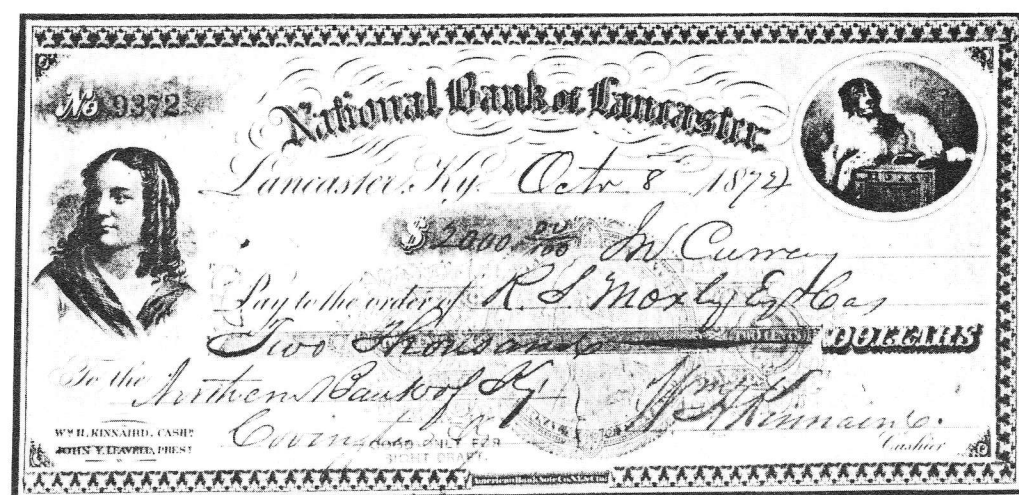 No 9372
National Bank of Lancaster
Lancaster, Ky. Octr 8th 1872
$ 2000 00/100 In Curren
Pay to the order of R. S Moxley Eq Cas
Two Thousand DOLLARS
To the Northern Bank of Ky
Wm H Kinnaird
Covington Ky
WM H. KINNAIRD, CASHR
JOHN F. LEAVELL, PREST
GOOD ONLY FOR
SIGHT DRAFT.
Cashier
American Bank Note Co.